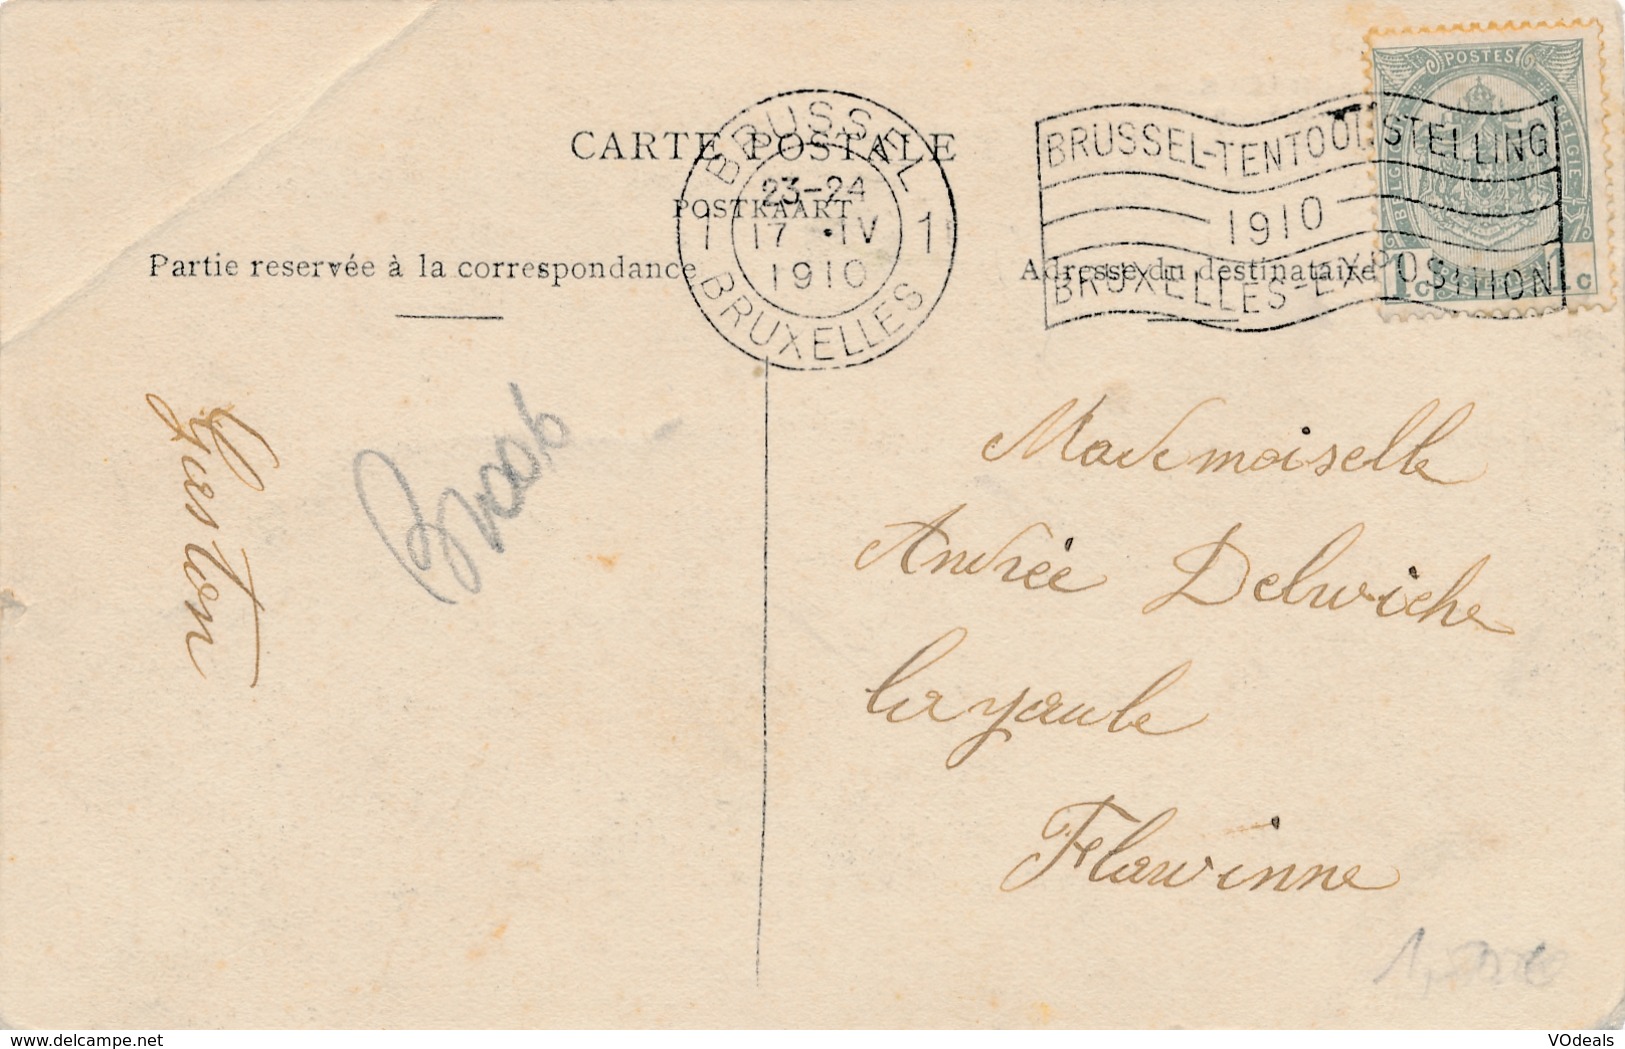 CARTE POSTALE
POSTKAART
Partie reservée à la correspondance
Adresse du destinataire
BRUSSEL
23-24
1 17 IV 1
1910
BRUXELLES
BRUSSEL-TENTOONSTELLING
1910
BRUXELLES-EXPOSITION
POSTES
BELGIQUE
BELGIE
1c 1c
Gaston
Mademoiselle
Andrée Delwiche
Flawinne
www.delcampe.net
VOdeals